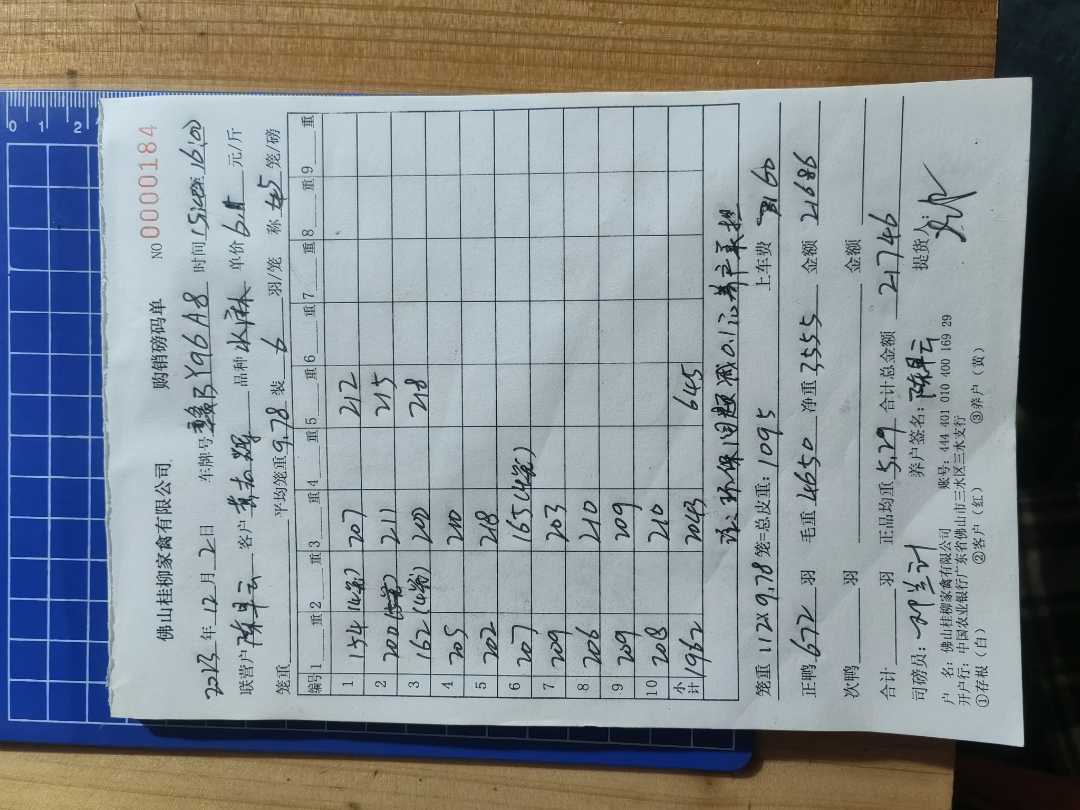 佛山桂柳家禽有限公司 购销磅码单 NO 0000184
2023年12月2日 车牌号 Y96A8 时间 16:00
联营户 陈早云 客户 黄志辉 品种 水麻 单价 6.1 元/斤
笼重 平均笼重 9.78 装 6 羽/笼 称 5 笼/磅
编号 1 重 2 重 3 重 4 重 5 重 6 重 7 重 8 重 9 重
1 154 (4笼) 207 212
2 200 (5笼) 211 215
3 162 (4笼) 200 218
4 205 210
5 202 218
6 207 165 (4笼)
7 209 203
8 206 210
9 209 209
10 208 210
小计 1962 2043 645
注:环保问题减0.1元养户承担
笼重 112×9.78 笼=总皮重:1095 上车费 60
正鸭 672 羽 毛重 4650 净重 3555 金额 21686
次鸭 羽 金额
合计 羽 正品均重 5.29 合计总金额 21746
司磅员: 养户签名:陈早云 提货人:
户 名:佛山桂柳家禽有限公司 账号:444 401 010 400 169 29
开户行:中国农业银行广东省佛山市三水区三水支行
①存根(白) ②客户(红) ③养户(黄)
0 1 2